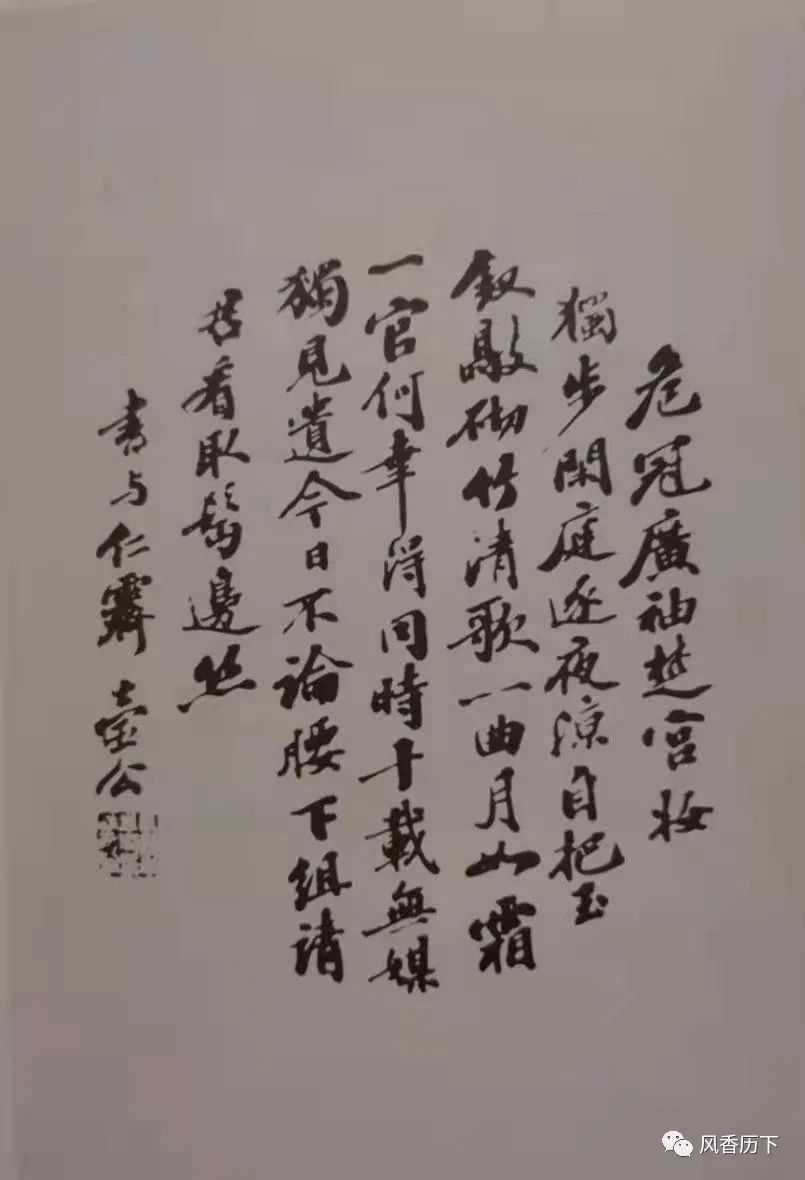 危冠廣袖楚宮妝
獨步閑庭逐夜涼自把玉
釵敲砌竹清歌一曲月如霜
一官何幸得同時十載無媒
獨見遺今日不論腰下組請
君看取鬢邊絲
書与仁霽 壷公
风香历下